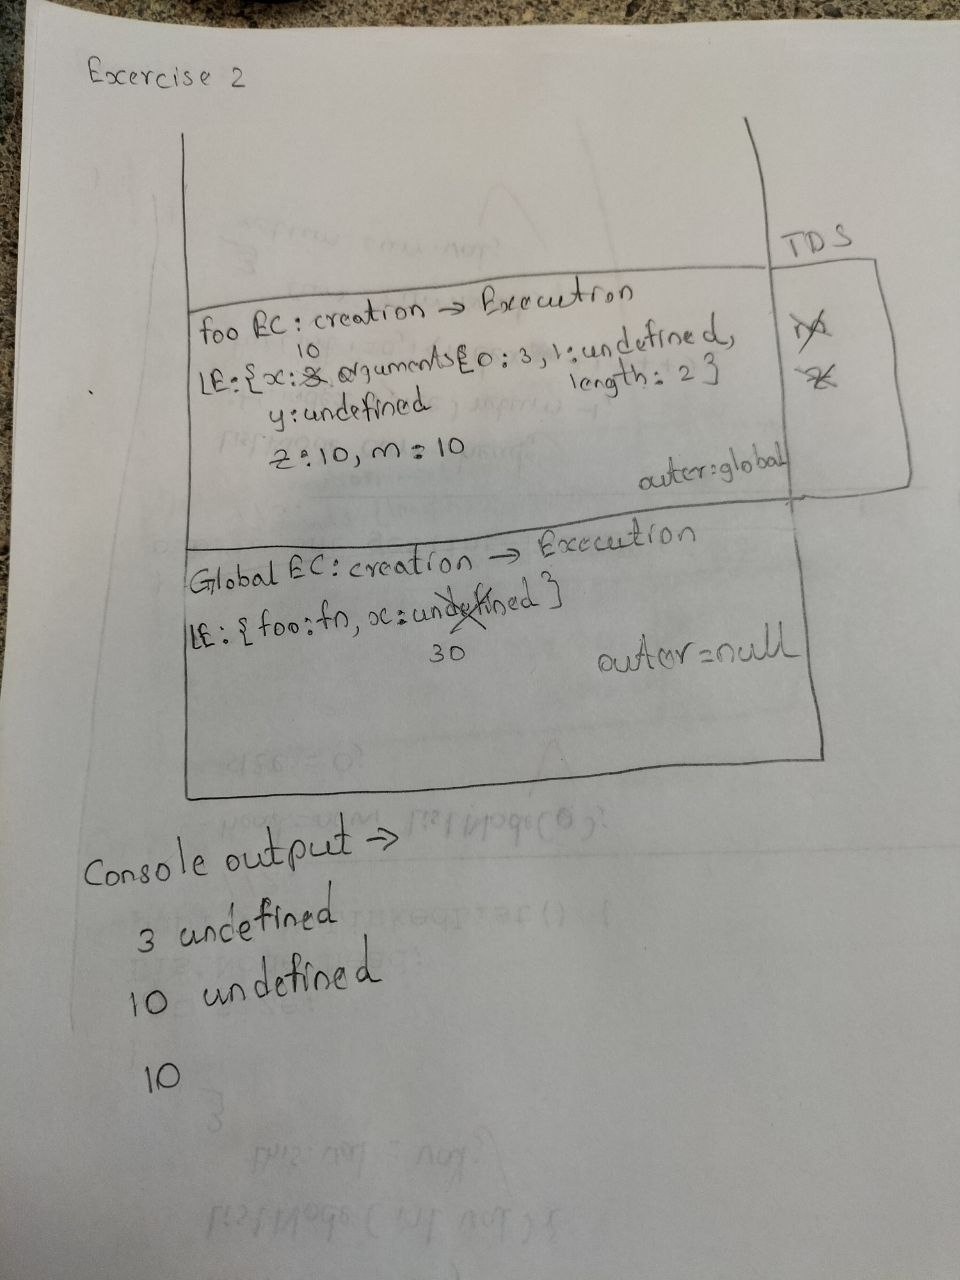 Exercise 2
TDS
foo EC: creation → Execution
10
LE: {x: 3, arguments{0: 3, 1: undefined,
length: 2}
y: undefined
z: 10, m: 10
m
z
outer: global
Global EC: creation → Execution
LE: {foo: fn, x: undefined}
30
outer = null
Console output →
3 undefined
10 undefined
10